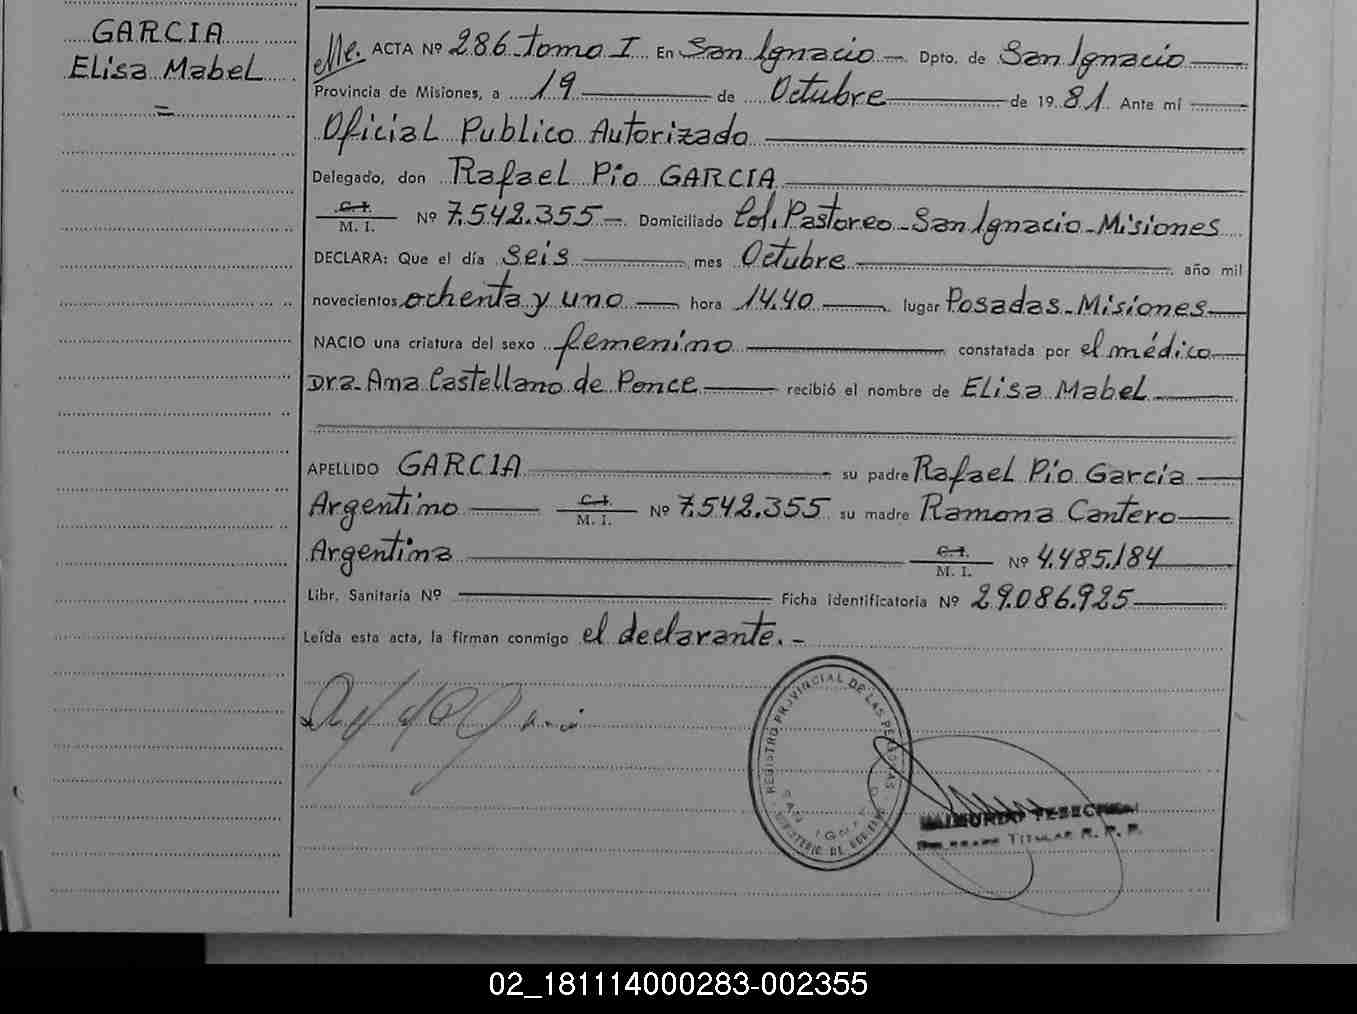 GARCIA
Elisa Mabel
=
ACTA Nº 286 tomo I En San Ignacio Dpto. de San Ignacio
Provincia de Misiones, a 19 de Octubre de 1981. Ante mi
Oficial Publico Autorizado
Delegado, don Rafael Pío GARCIA
C. I.
M. I. Nº 7.542.355 Domiciliado Col. Pastoreo - San Ignacio - Misiones
DECLARA: Que el día seis mes Octubre año mil
novecientos ochenta y uno hora 14.40 lugar Posadas - Misiones
NACIO una criatura del sexo femenino constatada por el médico
Dra. Ana Castellano de Ponce recibió el nombre de Elisa Mabel
APELLIDO GARCIA su padre Rafael Pío Garcia
Argentino C. I. M. I. Nº 7.542.355 su madre Ramona Cantero
Argentina C. I. M. I. Nº 4.485.184
Libr. Sanitaria Nº Ficha identificatoria Nº 29.086.925
Leída esta acta, la firman conmigo el declarante. -
REGISTRO PROVINCIAL DE LAS PERSONAS
SAN IGNACIO
MINISTERIO DE GOBIERNO
TITULAR R. P. P.
02_181114000283-002355